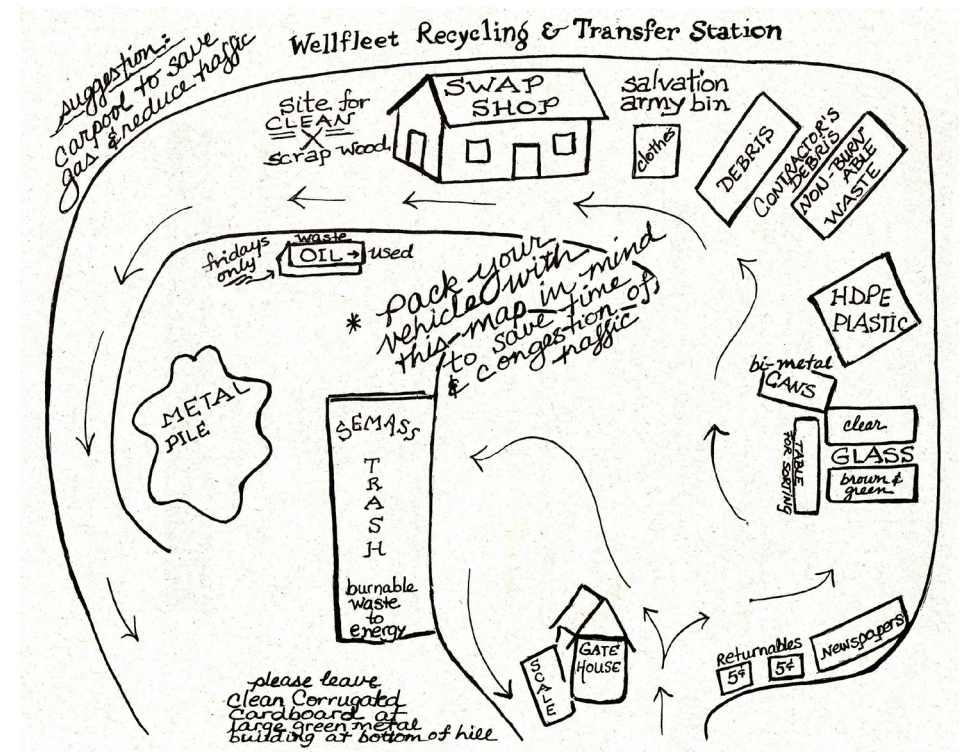 Wellfleet Recycling & Transfer Station
suggestion:
carpool to save
gas & reduce traffic
site for
CLEAN
X
scrap wood
SWAP
SHOP
salvation
army bin
clothes
DEBRIS
CONTRACTOR'S
DEBRIS
NON-BURN-
ABLE
WASTE
fridays
only
waste
OIL
used
* pack your
vehicle with
this map in mind
to save time
& congestion of
traffic
HDPE
PLASTIC
bi-metal
CANS
clear
GLASS
brown &
green
TABLE
FOR SORTING
METAL
PILE
SEMASS
TRASH
burnable
waste
to
energy
GATE
HOUSE
SCALE
Returnables
5¢
5¢
Newspapers
please leave
Clean Corrugated
Cardboard at
large green metal
building at bottom of hill